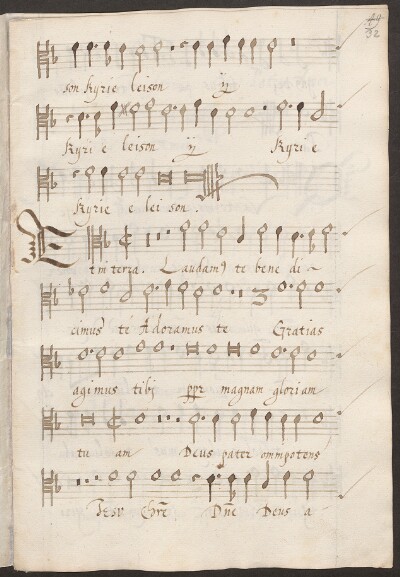 49
32
son kyrie leison ij
kyri e leison ij kyri e
kyrie e lei son.
Et in terra. Laudamꝰ te bene di-
cimus te Adoramus te Gratias
agimus tibi ppr magnam gloriam
tu am Deus pater omnipotens
Jesu Chre Dne Deus a